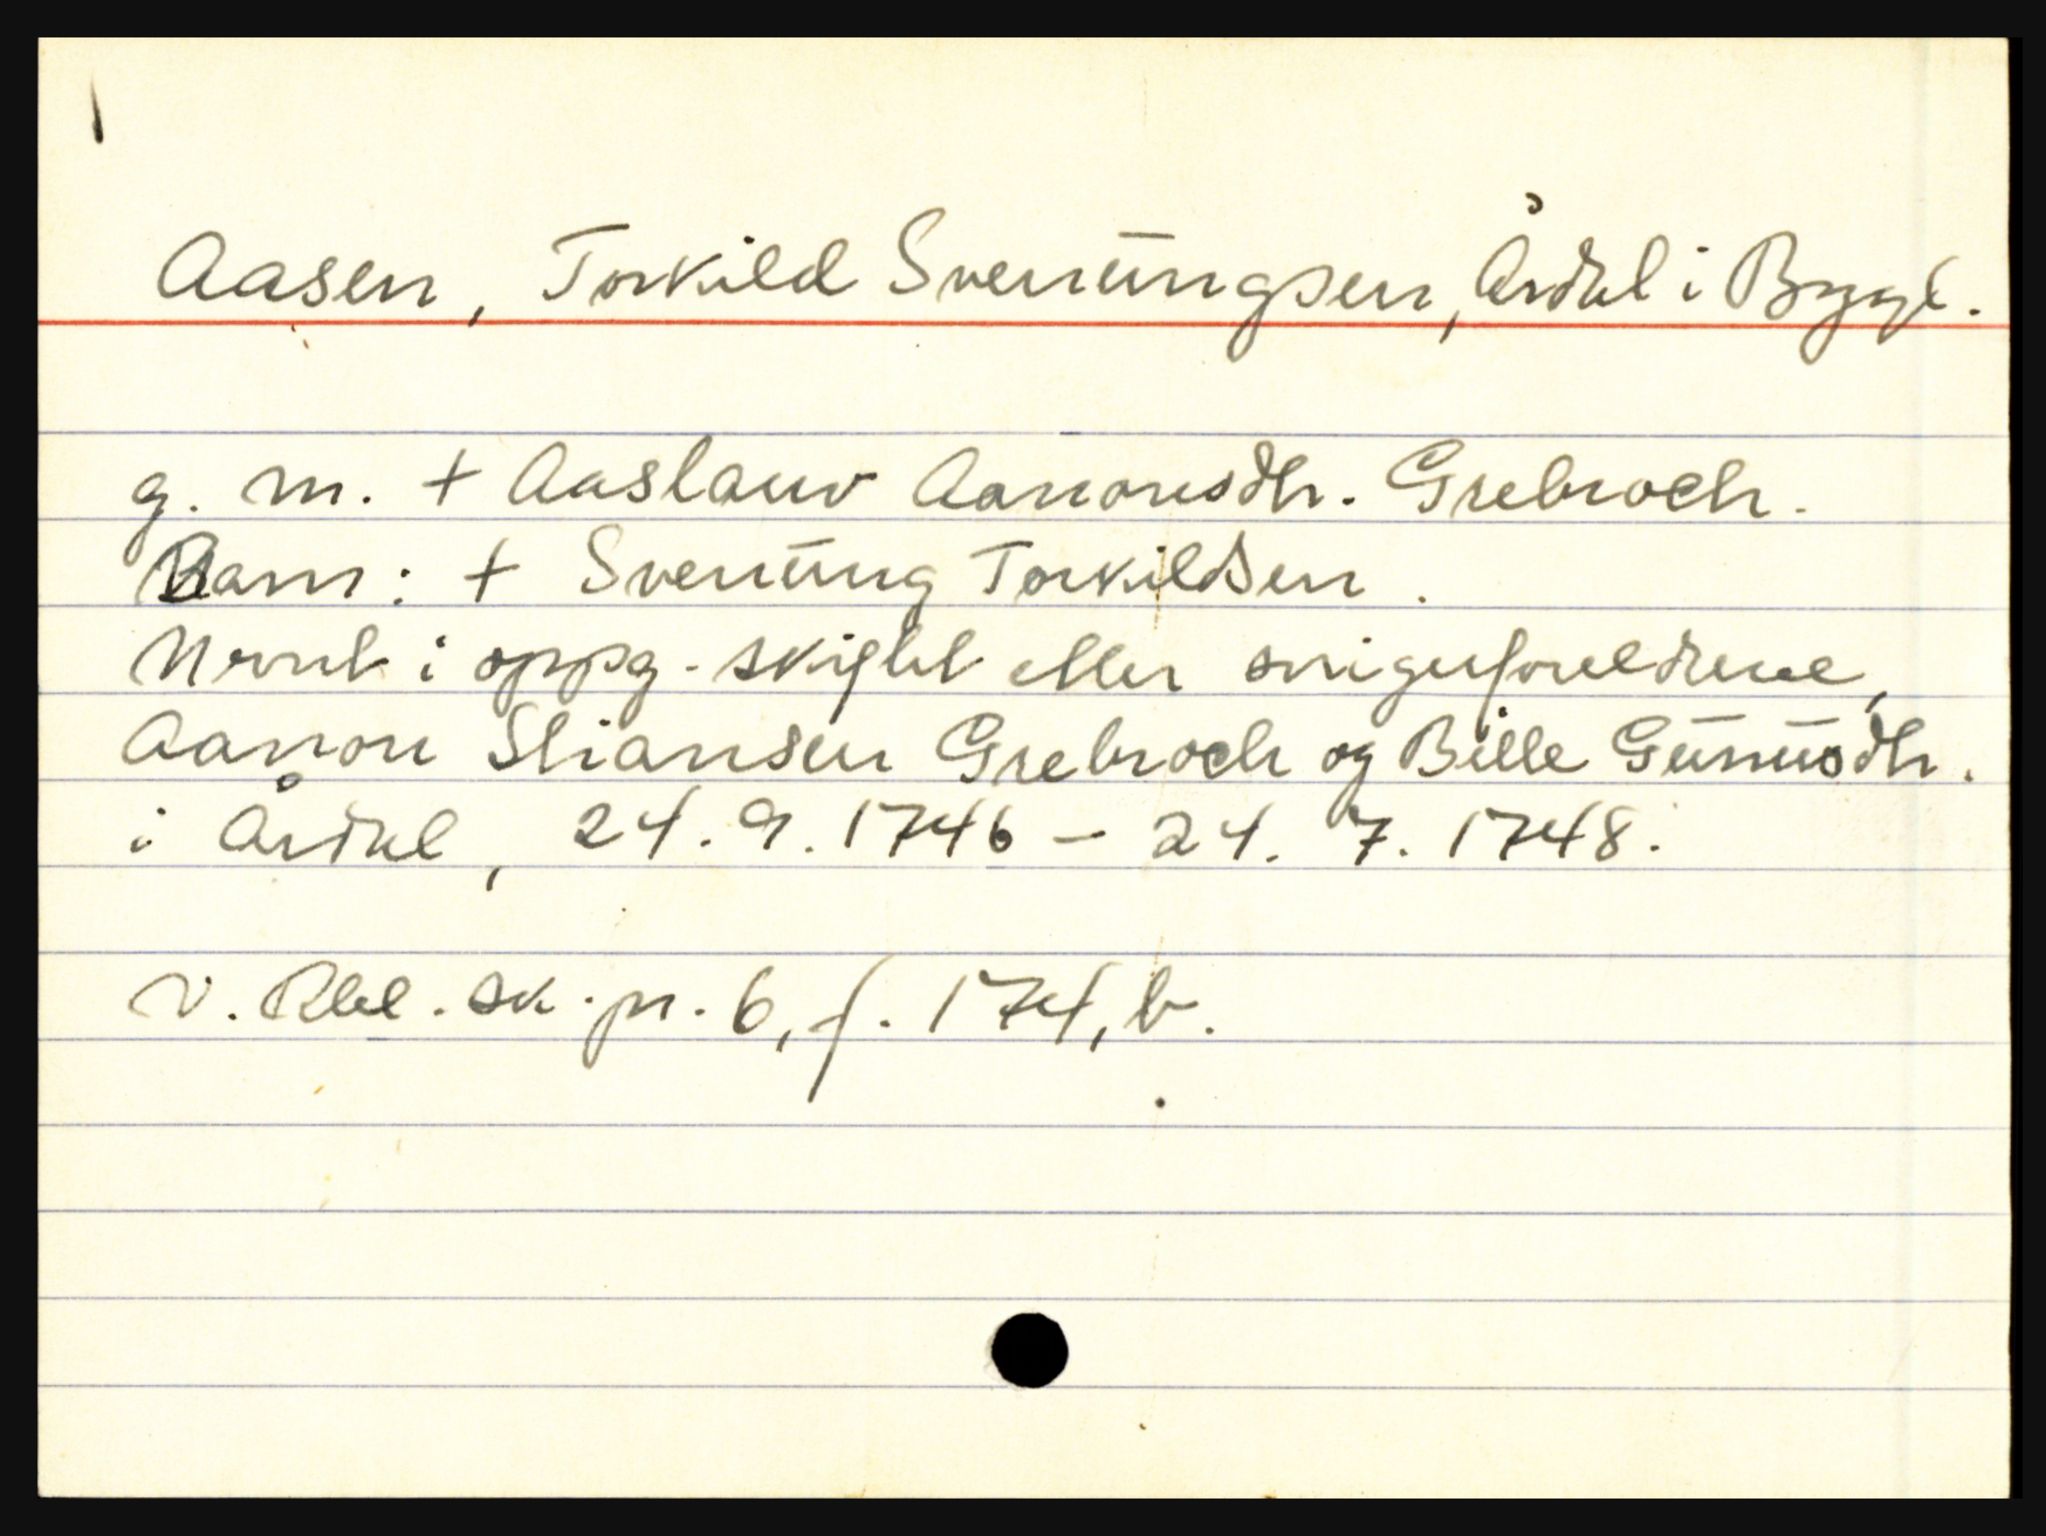 Aasen, Torkild Svenūngsen, Årdal i Bygl.
g. m. + Aaslauv Aanonsdtr. Grebroch.
Barn: + Svenūng Torkildsen.
Nevnt i oppg. skiftet etter svigerforeldrene,
Aanon Stiansen Grebroch og Bille Gūnūsdtr.
i Årdal, 24. 9. 1746 - 24. 7. 1748.
V. Rbl. sk. pr. 6, f. 174, b.